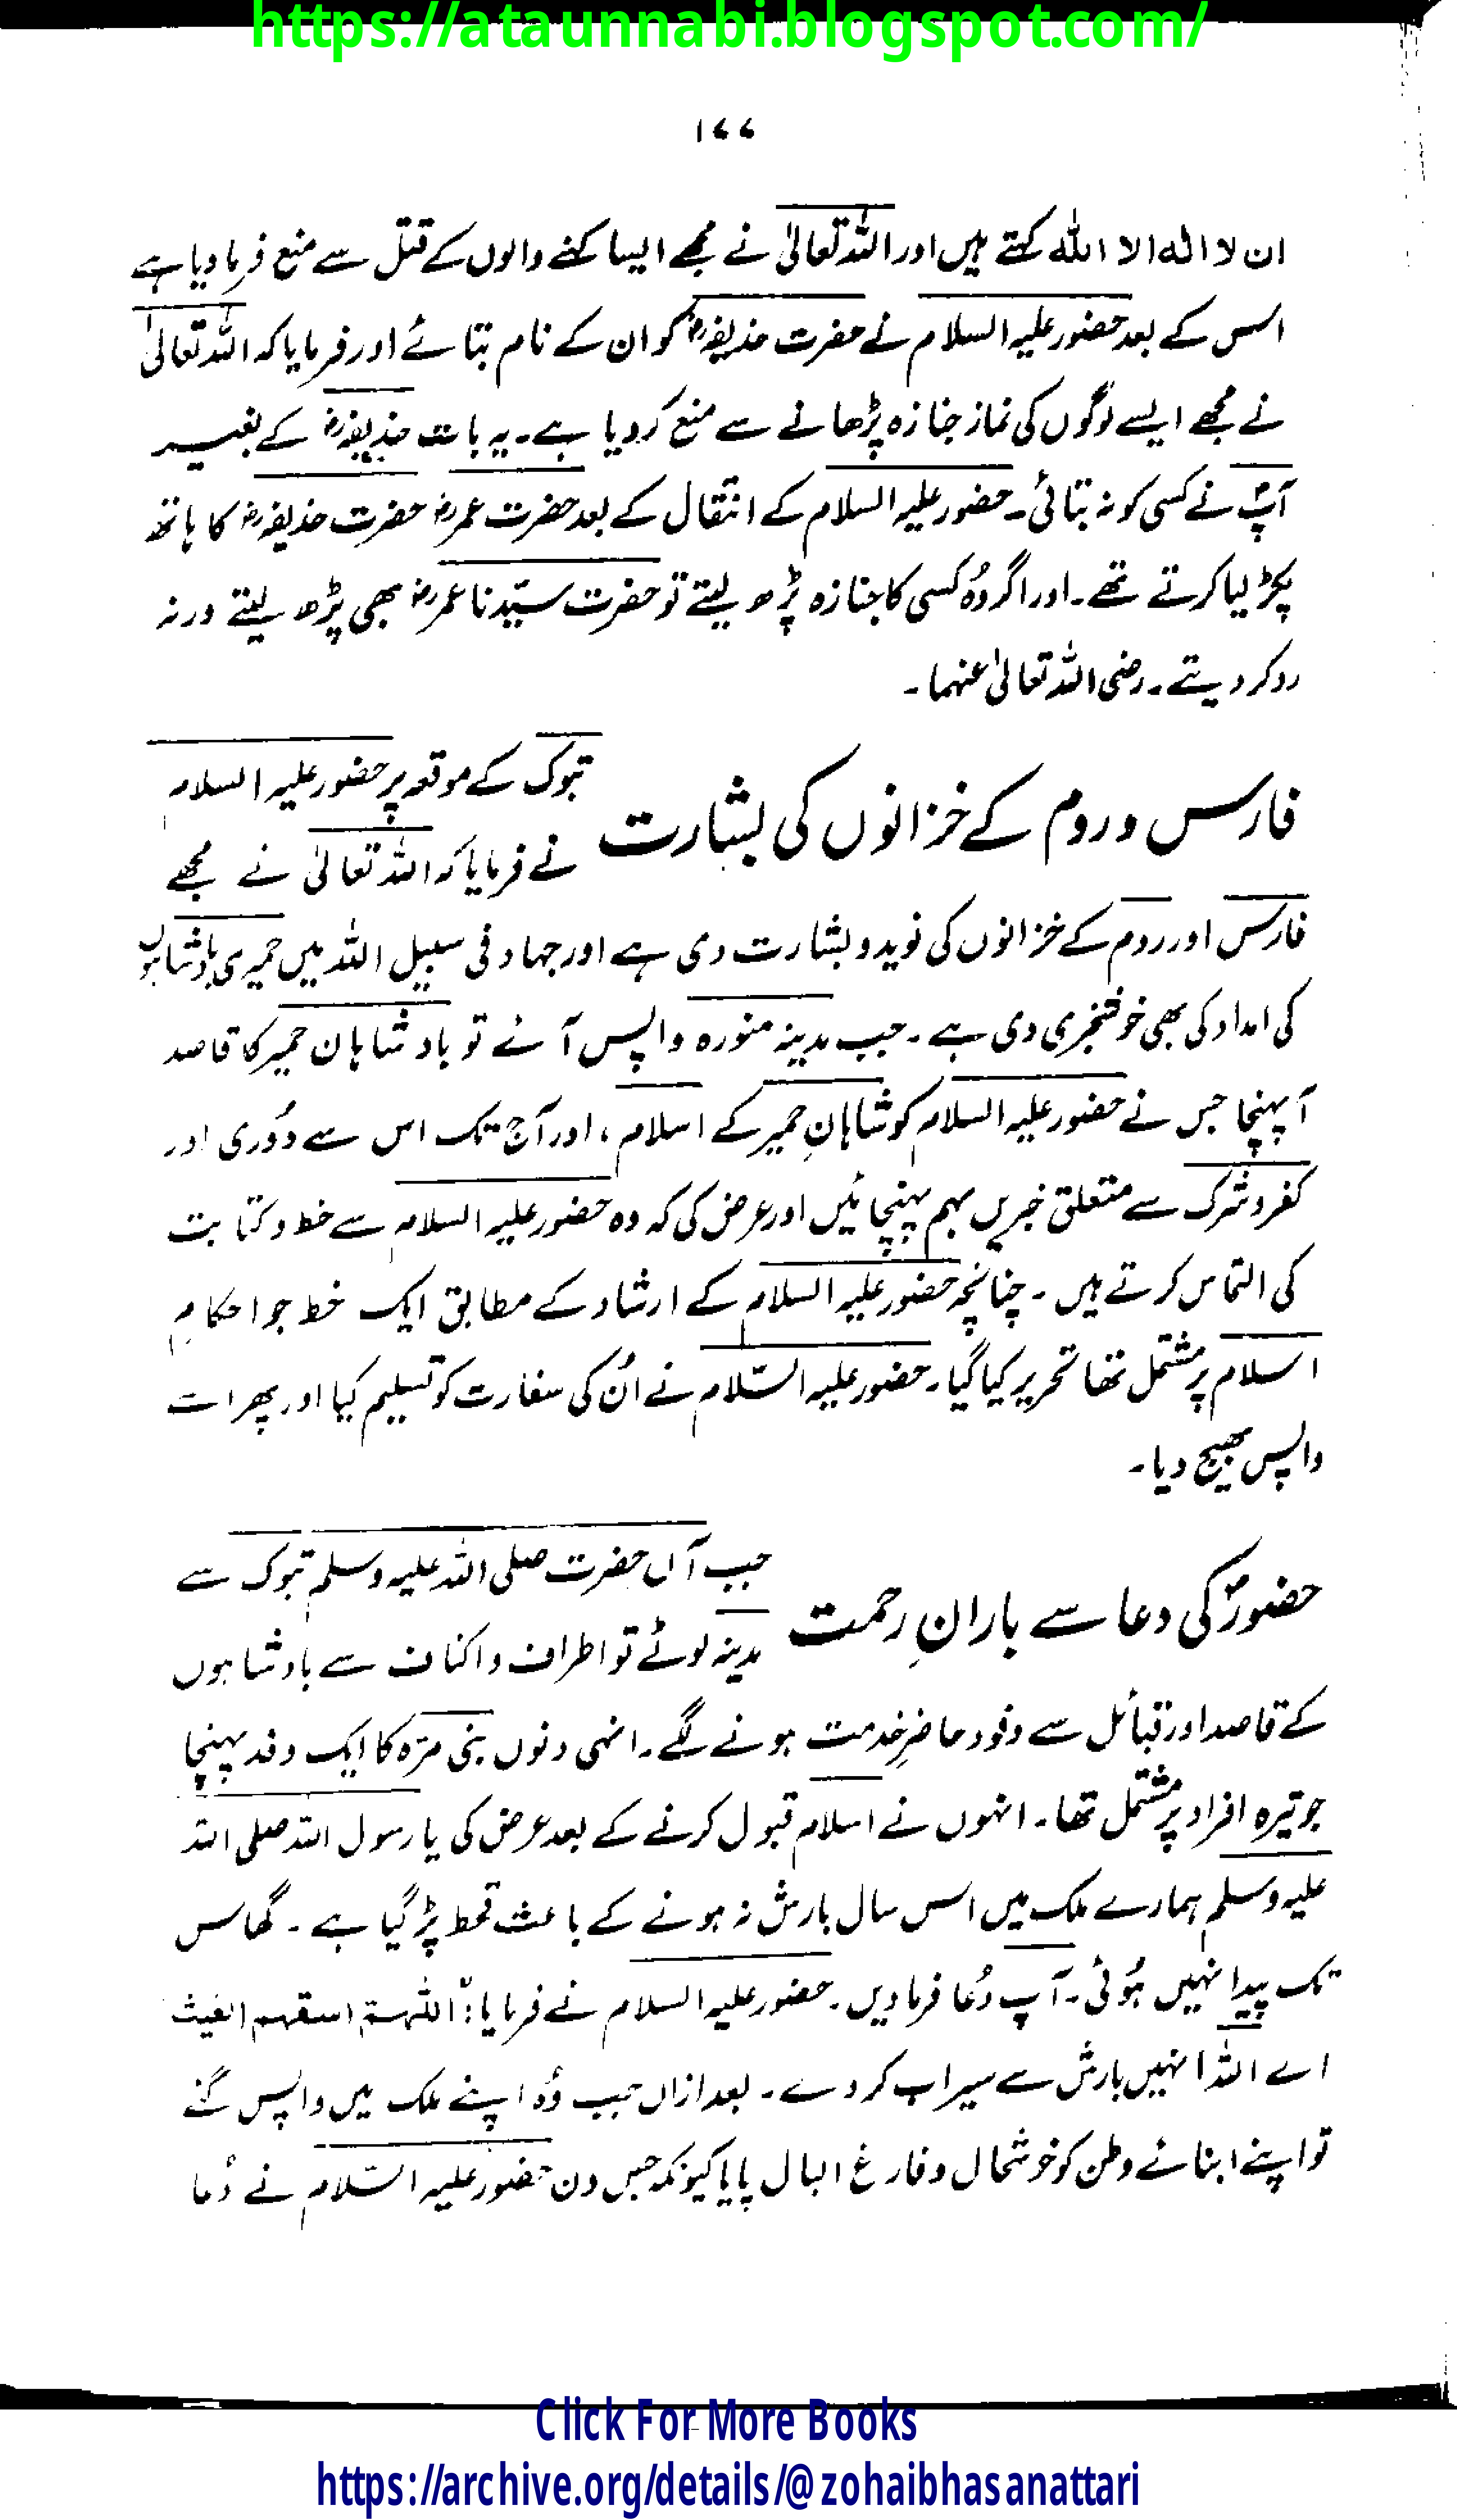 https://ataunnabi.blogspot.com/
۱۷۷
ان لا الہ الا اللہ کہتے ہیں اور اللہ تعالیٰ نے مجھے ایسا کہنے والوں کے قتل سے منع فرما دیا ہے
اس کے بعد حضور علیہ السلام نے حضرت حذیفہؓ کو ان کے نام بتائے اور فرمایا کہ اللہ تعالیٰ
نے مجھے ایسے لوگوں کی نماز جنازہ پڑھانے سے منع کر دیا ہے۔ یہ بات حذیفہؓ کے بغیر
آپؐ نے کسی کو نہ بتائی۔ حضور علیہ السلام کے انتقال کے بعد حضرت عمرؓ حضرت حذیفہؓ کا ہاتھ
پکڑ لیا کرتے تھے۔ اور اگر وُہ کسی کا جنازہ پڑھ لیتے تو حضرت سیّدنا عمرؓ بھی پڑھ لیتے ورنہ
رد کر دیتے۔ رضی اللہ تعالیٰ عنہما۔
فارس و روم کے خزانوں کی بشارت
تبوک کے موقعہ پر حضور علیہ السلام
نے فرمایا کہ اللہ تعالیٰ نے مجھے
فارس اور روم کے خزانوں کی نوید و بشارت دی ہے اور جہاد فی سبیل اللہ میں حمیری بادشاہوں
کی امداد کی بھی خوشخبری دی ہے۔ جب مدینہ منورہ واپس آئے تو بادشاہان حمیر کا قاصد
آپہنچا جس نے حضور علیہ السلام کو شاہانِ حمیر کے اسلام، اور آج تک اس سے دُوری اور
کفر و شرک سے متعلق خبریں بہم پہنچائیں اور عرض کی کہ وہ حضور علیہ السلام سے خط و کتابت
کی التماس کرتے ہیں۔ چنانچہ حضور علیہ السلام کے ارشاد کے مطابق ایک خط جو احکامِ
اسلام پر مشتمل تھا تحریر کیا گیا۔ حضور علیہ السّلام نے اُن کی سفارت کو تسلیم کیا اور پھر اسے
واپس بھیج دیا۔
حضورؐ کی دعا سے بارانِ رحمت
جب آں حضرت صلی اللہ علیہ وسلم تبوک سے
مدینہ لوٹے تو اطراف و اکناف سے بادشاہوں
کے قاصد اور قبائل سے وفود حاضرِ خدمت ہونے لگے۔ انہی دنوں بنی مرّہ کا ایک وفد پہنچا
جو تیرہ افراد پر مشتمل تھا۔ انہوں نے اسلام قبول کرنے کے بعد عرض کی یا رسول اللہ صلی اللہ
علیہ وسلم ہمارے ملک میں اس سال بارش نہ ہونے کے باعث قحط پڑ گیا ہے۔ گھاس
تک پیدا نہیں ہُوئی۔ آپ دُعا فرما دیں۔ حضور علیہ السلام نے فرمایا: "اللہم اسقہم الغیث
اے اللہ انہیں بارش سے سیراب کر دے۔ بعد ازاں جب وُہ اپنے ملک میں واپس گئے
تو اپنے ابنائے وطن کو خوشحال و فارغ البال پایا کیونکہ جس دن حضور علیہ السّلام نے دُعا
Click For More Books
https://archive.org/details/@zohaibhasanattari